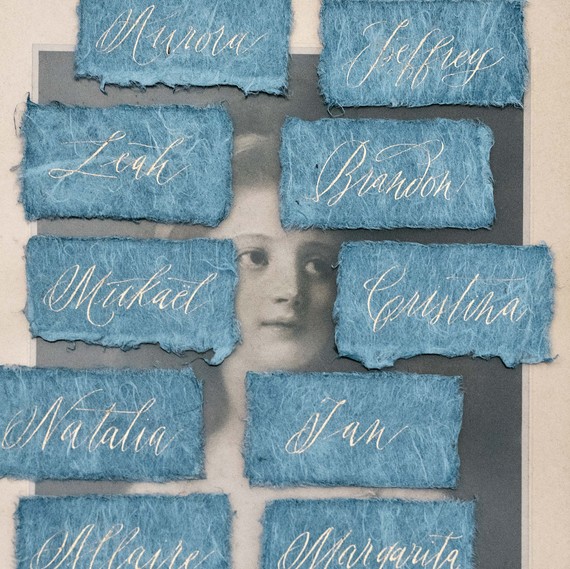 Aurora
Jeffrey
Leah
Brandon
Mikaël
Cristina
Natalia
Ian
Allaire
Margarita